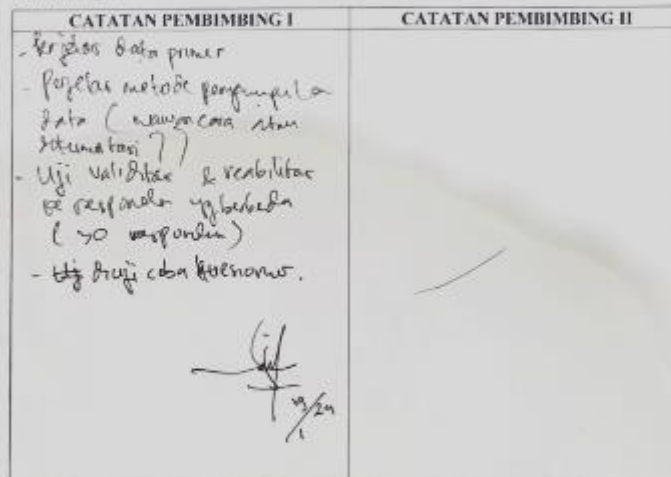 CATATAN PEMBIMBING I
CATATAN PEMBIMBING II
- Perjelas data primer
- Perjelas metode pengumpulan
data (wawancara atau
?)
- Uji validitas & reabilitas
ke responden yg berbeda
(30 responden)
- diuji coba kuesioner.